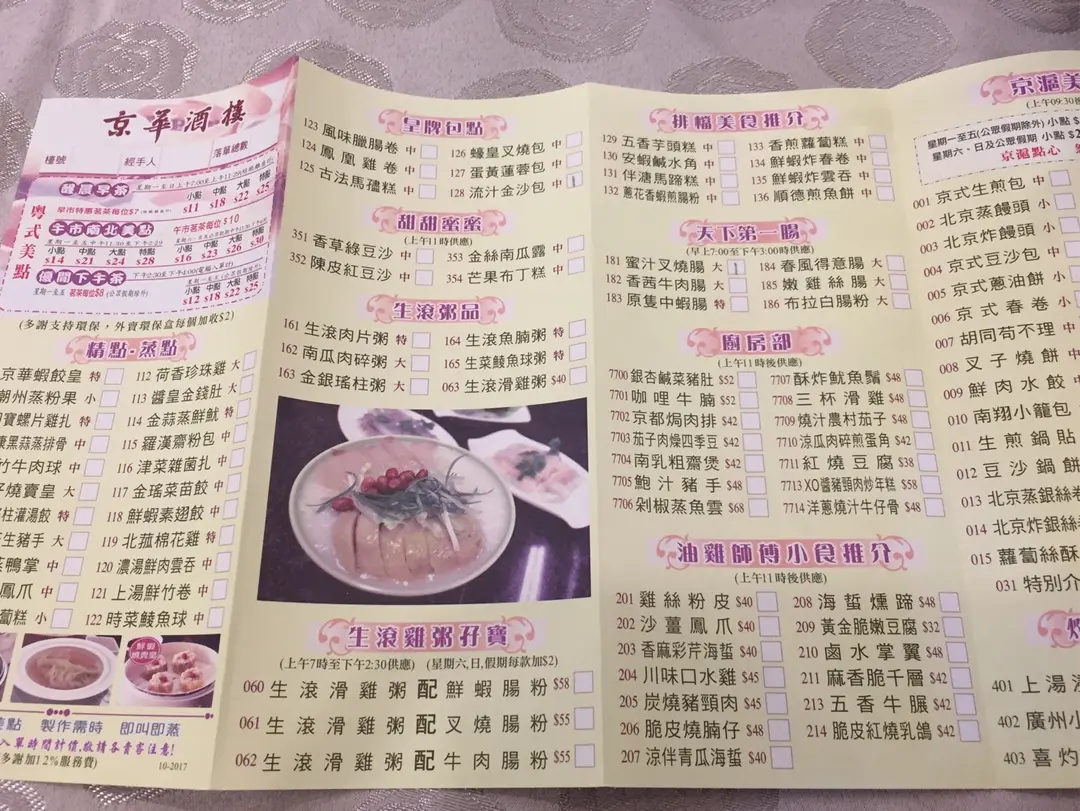 京華酒樓
檯號 經手人 落單總數
粵式美點
醒晨早茶 星期一至日上午7:00至上午11:29
小點 中點 大點 特點
$11 $18 $22 $25
早市特惠茗茶每位$7
午市南北美點 午市茗茶每位$10
小點 中點 大點 特點
$14 $21 $24 $28
小點 中點 大點 特點
$16 $23 $26 $30
優閒下午茶
星期一至五 茗茶每位$8 (公眾假期除外)
小點 中點 大點 特點
$12 $18 $22 $25
(多謝支持環保，外賣環保盒每個加收$2)
精點·蒸點
京華蝦餃皇 特
潮州蒸粉果 小
寶螺片雞扎 特
黑蒜蒸排骨 中
竹牛肉球 中
燒賣皇 大
柱灌湯餃 特
生豬手 大
鴨掌 中
鳳爪 中
蔔糕 小
112 荷香珍珠雞 大
113 醬皇金錢肚 大
114 金蒜蒸鮮魷 特
115 羅漢齋粉包 中
116 津菜雜菌扎 中
117 金瑤菜苗餃 中
118 鮮蝦素翅餃 中
119 北菰棉花雞 特
120 濃湯鮮肉雲吞 中
121 上湯鮮竹卷 中
122 時菜鯪魚球 中
鮮蝦燒賣皇
點 製作需時 即叫即蒸
入單時間計價,敬請各貴客注意!
多謝加12%服務費)
10-2017
皇牌包點
123 風味臘腸卷 中
124 鳳凰雞卷 中
125 古法馬孻糕 中
126 蠔皇叉燒包 中
127 蛋黃蓮蓉包 中
128 流汁金沙包 中
甜甜蜜蜜
(上午11時供應)
351 香草綠豆沙 中
352 陳皮紅豆沙 中
353 金絲南瓜露 中
354 芒果布丁糕 中
生滾粥品
161 生滾肉片粥 特
162 南瓜肉碎粥 大
163 金銀瑤柱粥 大
164 生滾魚腩粥 特
165 生菜鯪魚球粥 特
063 生滾滑雞粥 $40
生滾雞粥孖寶
(上午7時至下午2:30供應) (星期六,日,假期每款加$2)
060 生滾滑雞粥配鮮蝦腸粉 $58
061 生滾滑雞粥配叉燒腸粉 $55
062 生滾滑雞粥配牛肉腸粉 $55
排檔美食推介
129 五香芋頭糕 中
130 安蝦鹹水角 中
131 伴溏馬蹄糕 中
132 蔥花香蝦煎腸粉 中
133 香煎蘿蔔糕 中
134 鮮蝦炸春卷 中
135 鮮蝦炸雲吞 中
136 順德煎魚餅 中
天下第一腸
(早上7:00至下午3:00時供應)
181 蜜汁叉燒腸 大
182 香茜牛肉腸 大
183 原隻中蝦腸 特
184 春風得意腸 大
185 嫩雞絲腸 大
186 布拉白腸粉 大
廚房部
(上午11時後供應)
7700 銀杏鹹菜豬肚 $52
7701 咖哩牛腩 $52
7702 京都焗肉排 $42
7703 茄子肉燥四季豆 $42
7704 南乳粗齋煲 $42
7705 鮑汁豬手 $48
7706 剁椒蒸魚雲 $68
7707 酥炸魷魚鬚 $48
7708 三杯滑雞 $48
7709 燒汁農村茄子 $48
7710 涼瓜肉碎煎蛋角 $42
7711 紅燒豆腐 $38
7713 XO醬豬頸肉炒年糕 $58
7714 洋蔥燒汁牛仔骨 $48
油雞師傅小食推介
(上午11時後供應)
201 雞絲粉皮 $40
202 沙薑鳳爪 $40
203 香麻彩芹海蜇 $40
204 川味口水雞 $45
205 炭燒豬頸肉 $45
206 脆皮燒腩仔 $48
207 涼伴青瓜海蜇 $40
208 海蜇燻蹄 $48
209 黃金脆嫩豆腐 $32
210 鹵水掌翼 $48
211 麻香脆千層 $42
213 五香牛𦟌 $42
214 脆皮紅燒乳鴿 $42
京滬美
(上午09:30
星期一至五(公眾假期除外) 小點
星期六、日及公眾假期 小點
京滬點心
001 京式生煎包 中
002 北京蒸饅頭 小
003 北京炸饅頭 小
004 京式豆沙包 中
005 京式蔥油餅 小
006 京式春卷 小
007 胡同苟不理 中
008 叉子燒餅 中
009 鮮肉水餃 中
010 南翔小籠包
011 生煎鍋貼
012 豆沙鍋餅
013 北京蒸銀絲卷
014 北京炸銀絲
015 蘿蔔絲酥
031 特別介
401 上湯
402 廣州小
403 喜灼